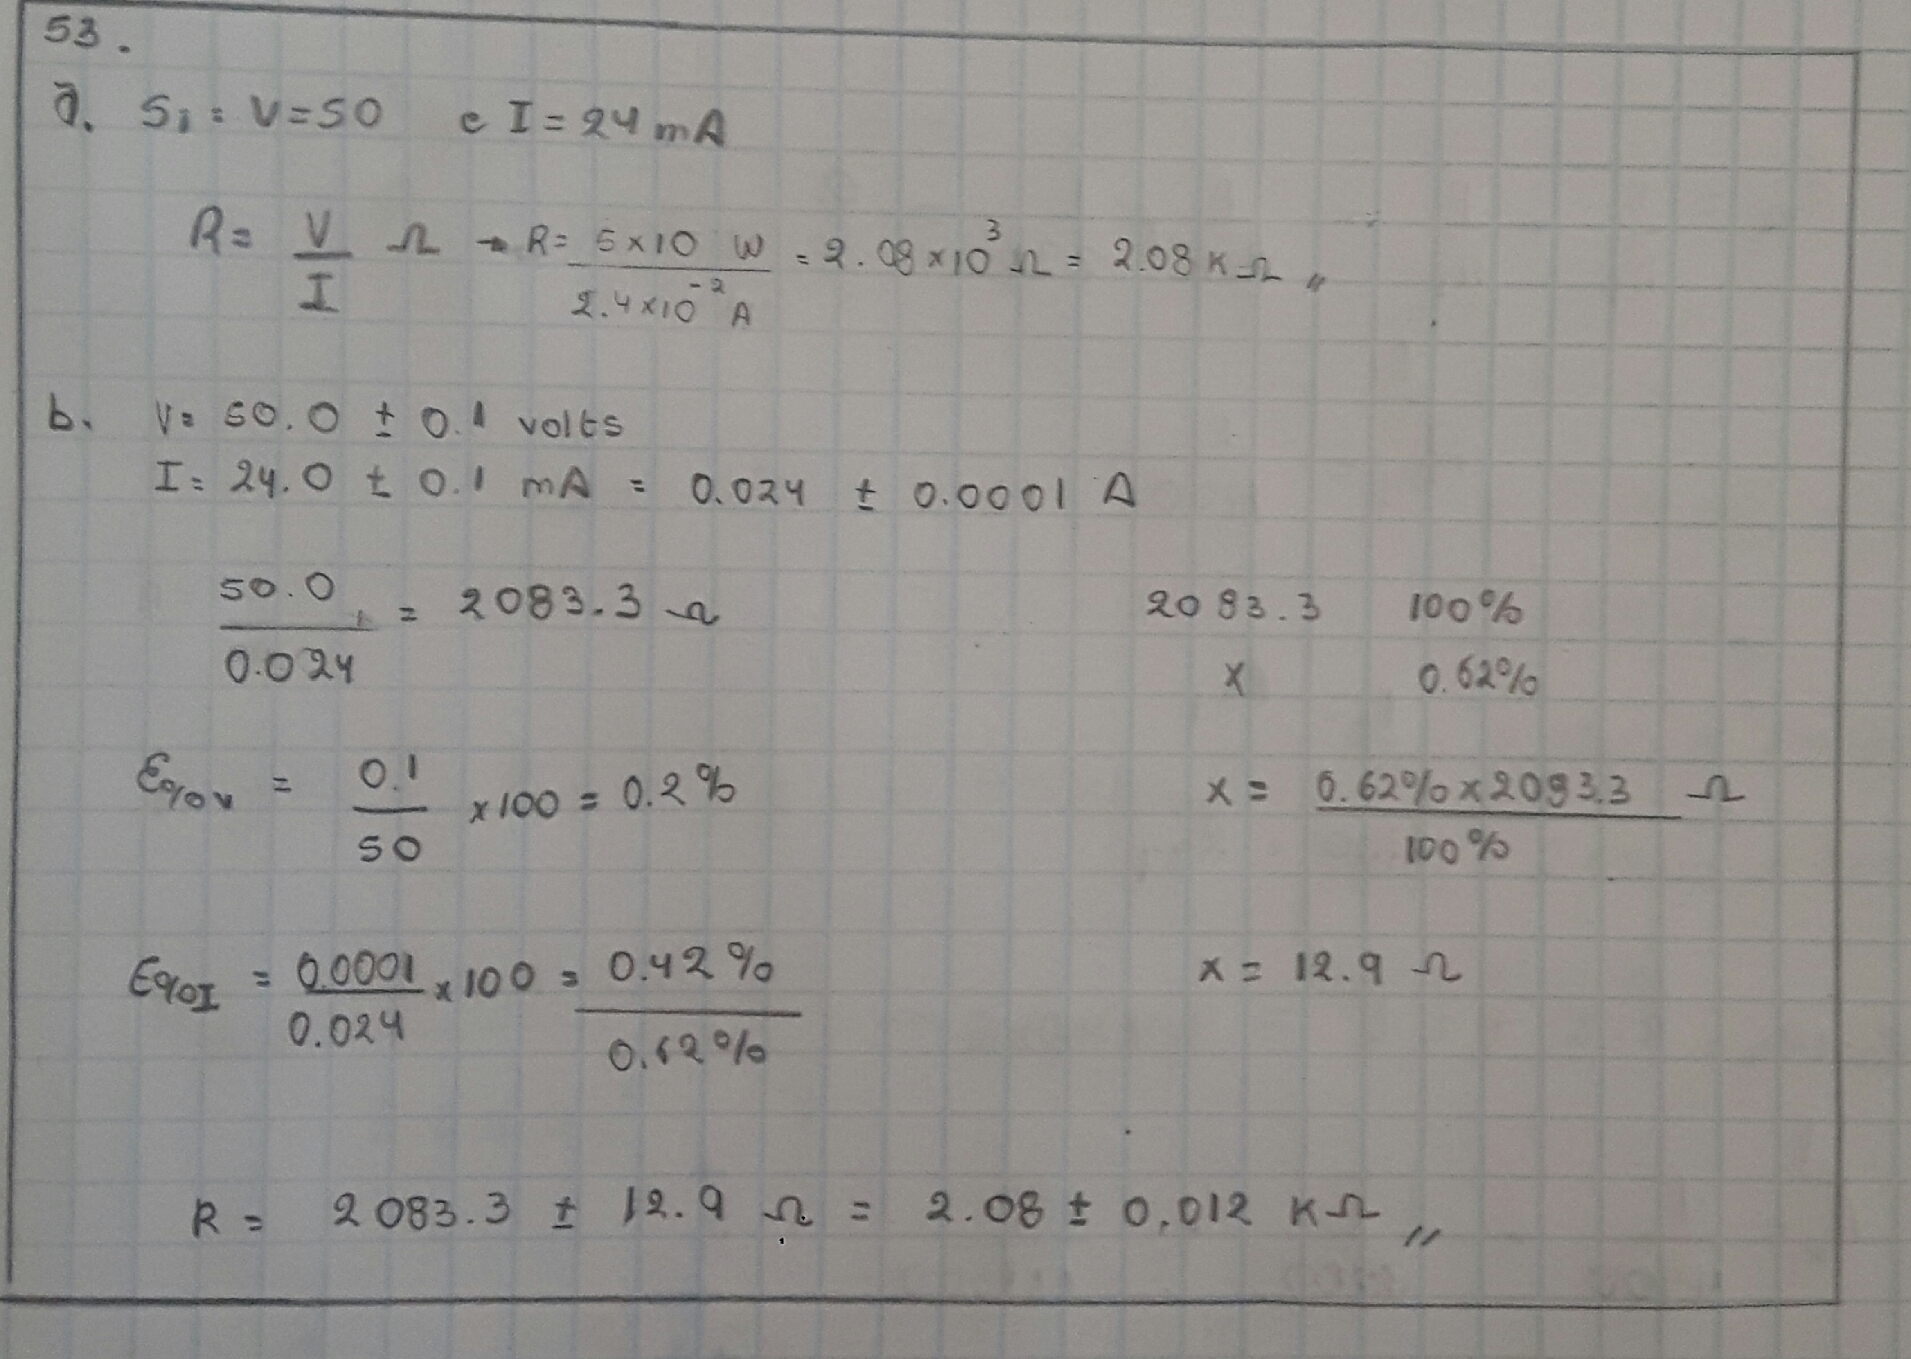 53.
a. Si: V=50 e I=24 mA
R= V/I Ω → R= 5x10 W / 2.4x10⁻² A = 2.08x10³ Ω = 2.08 KΩ,,
b. V= 50.0 ± 0.1 volts
I= 24.0 ± 0.1 mA = 0.024 ± 0.0001 A
50.0 / 0.024 = 2083.3 Ω
2083.3 100%
x 0.62%
E%V = 0.1/50 x100 = 0.2%
x = 0.62% x 2083.3 / 100% Ω
E%I = 0.0001/0.024 x100 = 0.42%
0.62%
x = 12.9 Ω
R = 2083.3 ± 12.9 Ω = 2.08 ± 0.012 KΩ,,